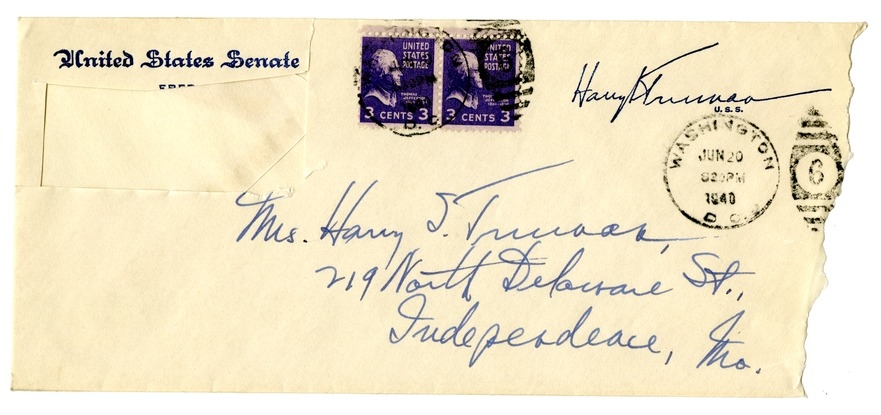 United States Senate
FREE
UNITED
STATES
POSTAGE
THOMAS
JEFFERSON
3 CENTS 3
UNITED
STATES
POSTAGE
THOMAS
JEFFERSON
3 CENTS 3
Harry S Truman
U.S.S.
WASHINGTON
JUN 20
1940
D. C.
6
Mrs. Harry S. Truman,
219 North Delaware St.,
Independence, Mo.